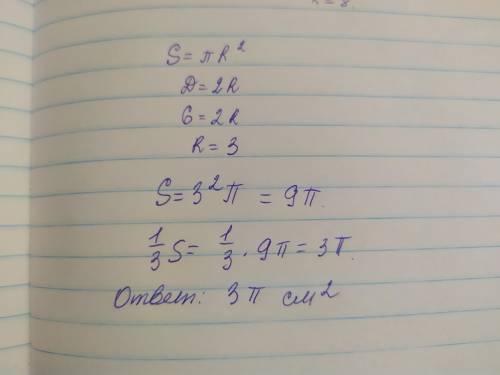 S = πR²
D = 2R
6 = 2R
R = 3
S = 3²π = 9π.
1/3 S = 1/3 · 9π = 3π.
Ответ: 3π см²